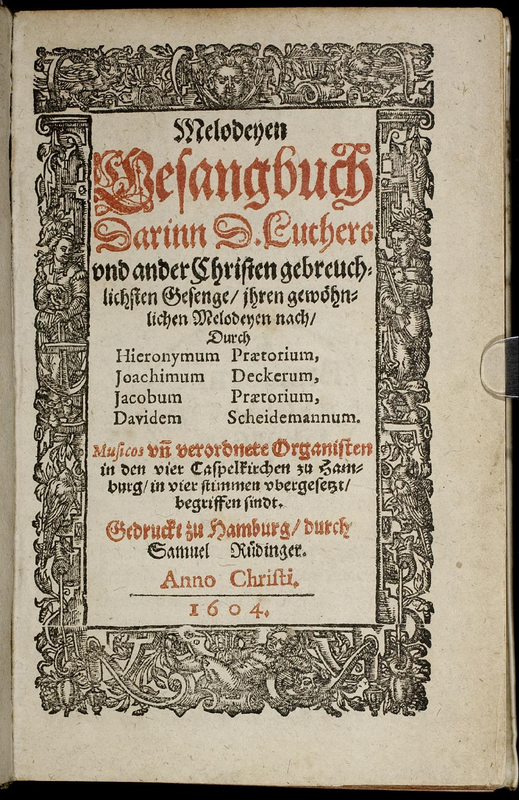 Melodeyen
Gesangbuch
Darinn D. Luthers
vnd ander Christen gebreuch⸗
lichsten Gesenge/ jhren gewöhn⸗
lichen Melodeyen nach/
Durch
Hieronymum Prætorium,
Joachimum Deckerum,
Jacobum Prætorium,
Davidem Scheidemannum.
Musicos vñ verordnete Organisten
in den vier Caspelkirchen zu Ham⸗
burg/ in vier stimmen vbergesetzt/
begriffen sindt.
Gedruckt zu Hamburg/ durch
Samuel Rüdinger.
Anno Christi.
1604.